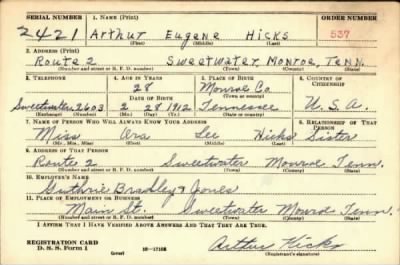 SERIAL NUMBER 1. NAME (Print) ORDER NUMBER
2421 Arthur Eugene Hicks 537
(First) (Middle) (Last)
2. ADDRESS (Print)
Route 2 Sweetwater, Monroe, Tenn.
(Number and street or R. F. D. number) (Town) (County) (State)
3. TELEPHONE 4. AGE IN YEARS 5. PLACE OF BIRTH 6. COUNTRY OF CITIZENSHIP
28 Monroe Co.
(Town or county)
DATE OF BIRTH
Sweetwater 2603 2 28 1912 Tennessee U. S. A.
(Exchange) (Number) (Mo.) (Day) (Yr.) (State or country)
7. NAME OF PERSON WHO WILL ALWAYS KNOW YOUR ADDRESS 8. RELATIONSHIP OF THAT PERSON
Miss Ora Lee Hicks Sister
(Mr., Mrs., Miss) (First) (Middle) (Last)
9. ADDRESS OF THAT PERSON
Route 2 Sweetwater Monroe Tenn.
(Number and street or R. F. D. number) (Town) (County) (State)
10. EMPLOYER'S NAME
Guthrie Bradley & Jones
11. PLACE OF EMPLOYMENT OR BUSINESS
Main St. Sweetwater Monroe Tenn.
(Number and street or R. F. D. number) (Town) (County) (State)
I AFFIRM THAT I HAVE VERIFIED ABOVE ANSWERS AND THAT THEY ARE TRUE.
REGISTRATION CARD
D. S. S. Form 1 (over) 16—17105 Arthur Hicks
(Registrant's signature)